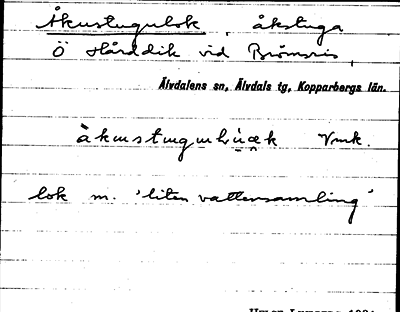 Åkustugulok, åkstuga
Ö Hårddik vid Brömsris,
Älvdalens sn, Älvdals tg, Kopparbergs län.
Vmk.
lok m. 'liten vattensamling'